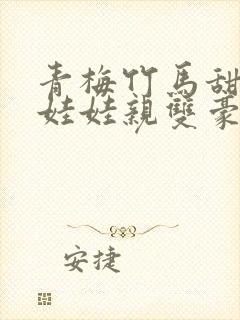 青梅竹馬甜
娃娃親雙豪
安捷